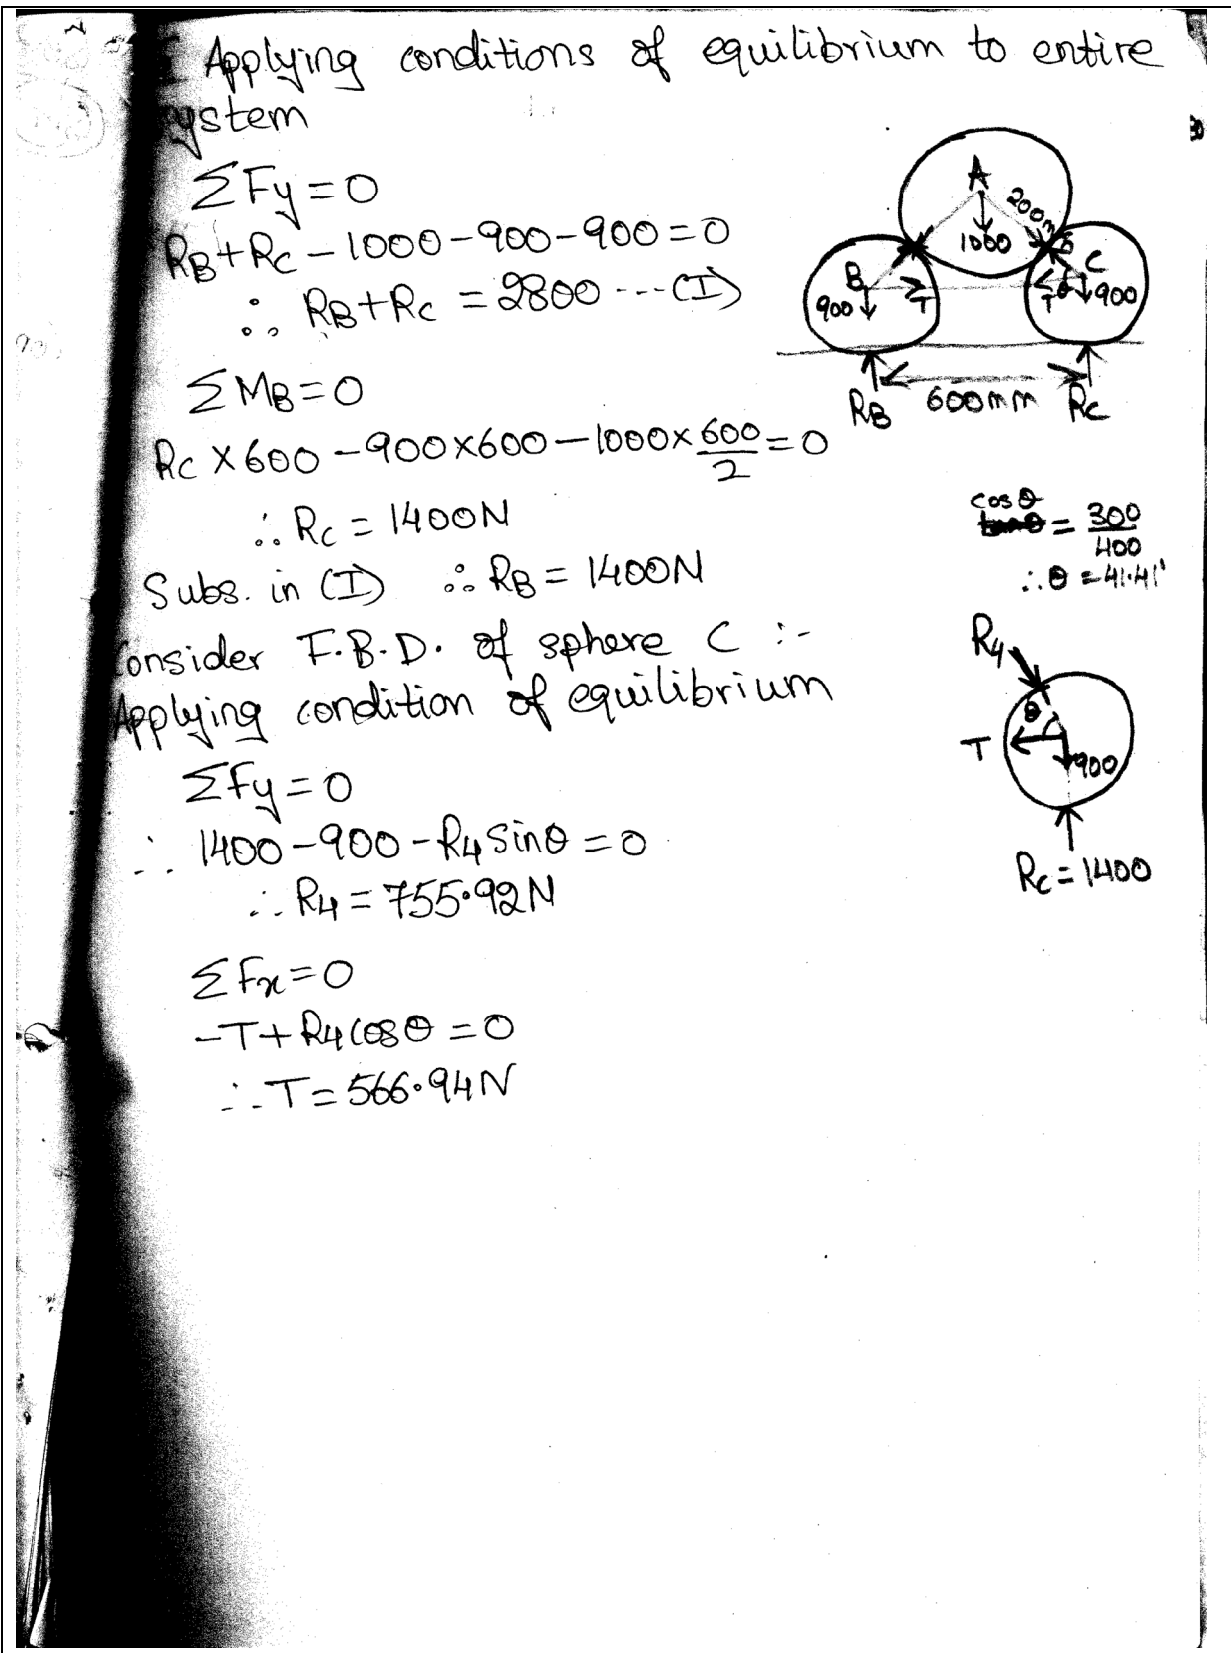 Applying conditions of equilibrium to entire
ystem
ΣFy = 0
RB + RC - 1000 - 900 - 900 = 0
∴ RB + RC = 2800 --- (I)
ΣMB = 0
RC × 600 - 900 × 600 - 1000 × 600/2 = 0
∴ RC = 1400N
Subs. in (I) ∴ RB = 1400N
onsider F.B.D. of sphere C :-
Applying condition of equilibrium
ΣFy = 0
∴ 1400 - 900 - R4 Sinθ = 0
∴ R4 = 755.92N
ΣFx = 0
-T + R4 cosθ = 0
∴ T = 566.94N
A
200m
1000
B
C
900
T
T
θ
900
RB
600mm
RC
cosθ = 300/400
∴ θ = 41.41°
R4
θ
C
T
900
RC = 1400